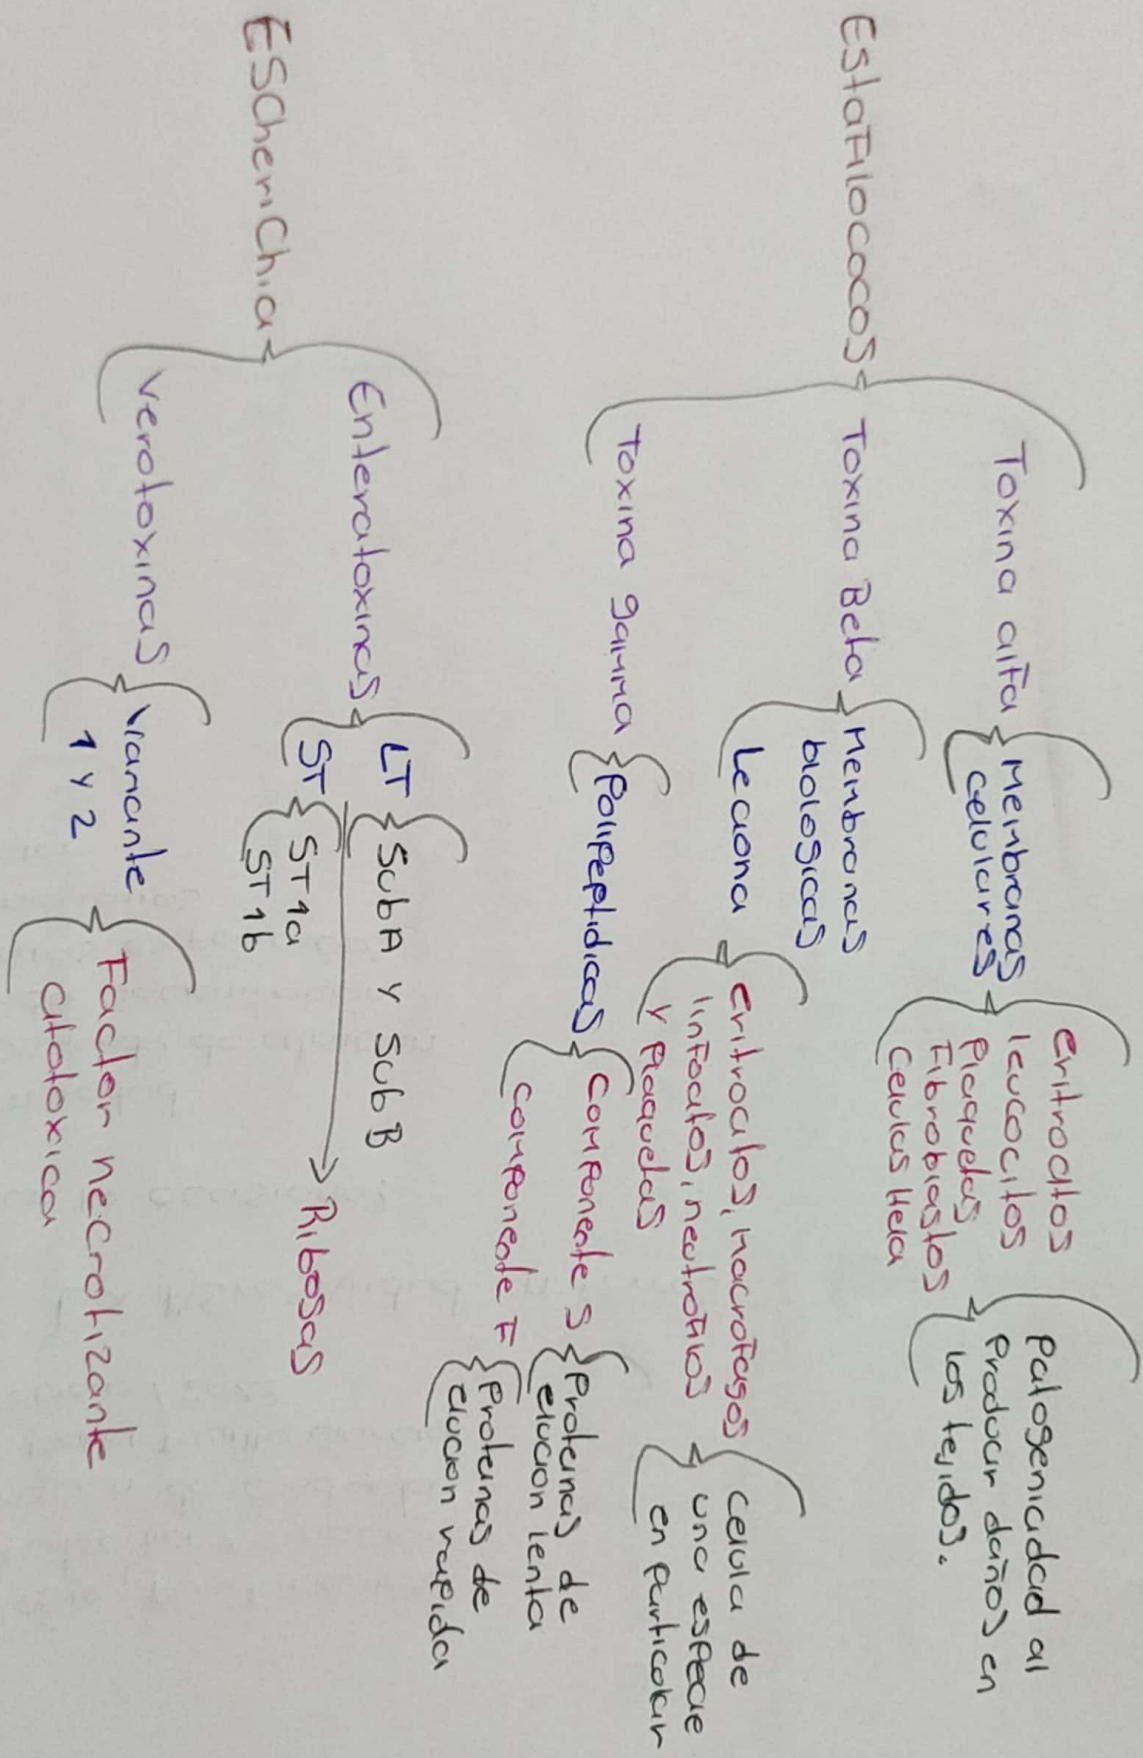 Estafilococos
Toxina alfa
Membranas
celulares
Eritrocitos
leucocitos
Plaquetas
Fibroblastos
Celulas Hela
Patogenicidad al
Producir daños en
los tejidos.
Toxina Beta
Membranas
biologicas
Leciona
Eritrocitos, macrofagos
linfocitos, neutrofilos
y Plaquetas
Celula de
una especie
en particular
Toxina gamma
Polipeptidicas
Componente S
Proteinas de
elucion lenta
Componente F
Proteinas de
elucion rapida
Escherichia
Enterotoxinas
LT
Sub A y sub B
ST
ST1a
ST1b
Ribosas
Verotoxinas
Viariante
1 y 2
Factor necrotizante
citotoxica